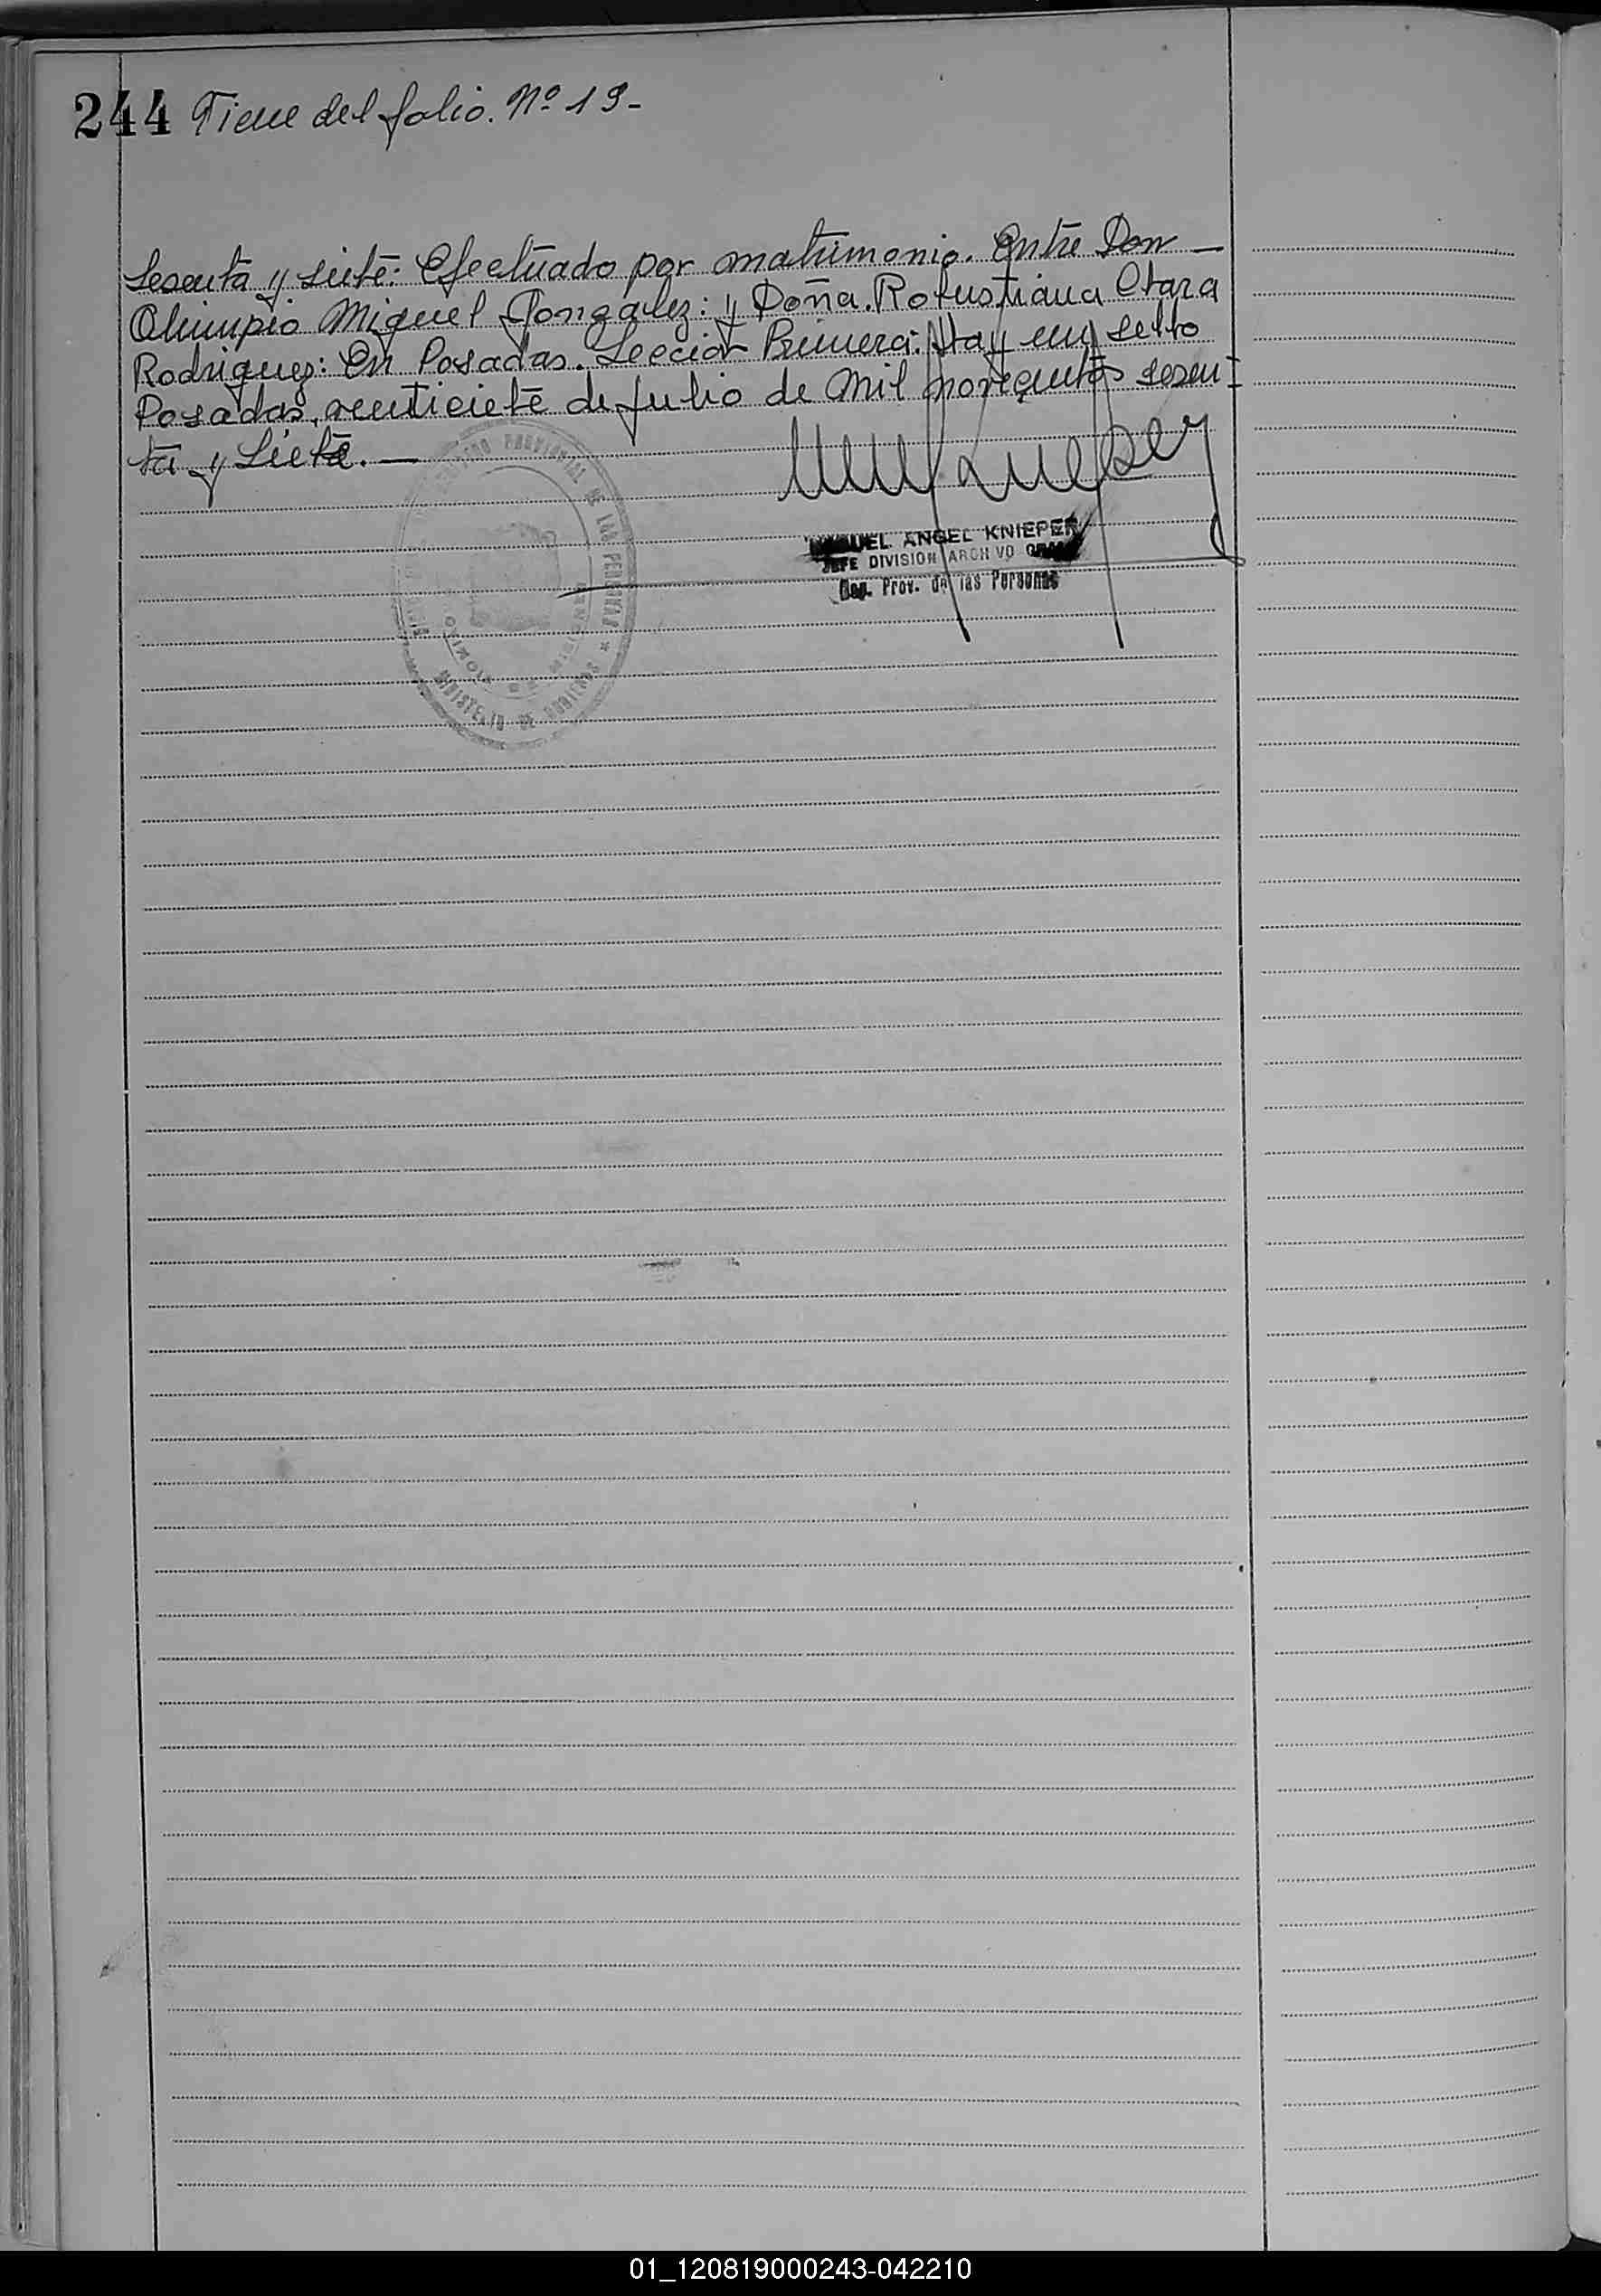 244 Tiene del folio. Nº 19-
Sesenta y siete: Efectuado por matrimonio. Entre Don —
Olimpio Miguel Gonzalez: y Doña. Robustiana Clara
Rodriguez: En Posadas. Sección Primera: Hay un sello
Posadas, venticiete de julio de mil novecientos sesen-
ta y Siete. —
MIGUEL ANGEL KNIEPER
JEFE DIVISION ARCHIVO GRAL
Reg. Prov. de las Personas
REGISTRO PROVINCIAL DE LAS PERSONAS *
MINISTERIO DE GOBIERNO
01_120819000243-042210